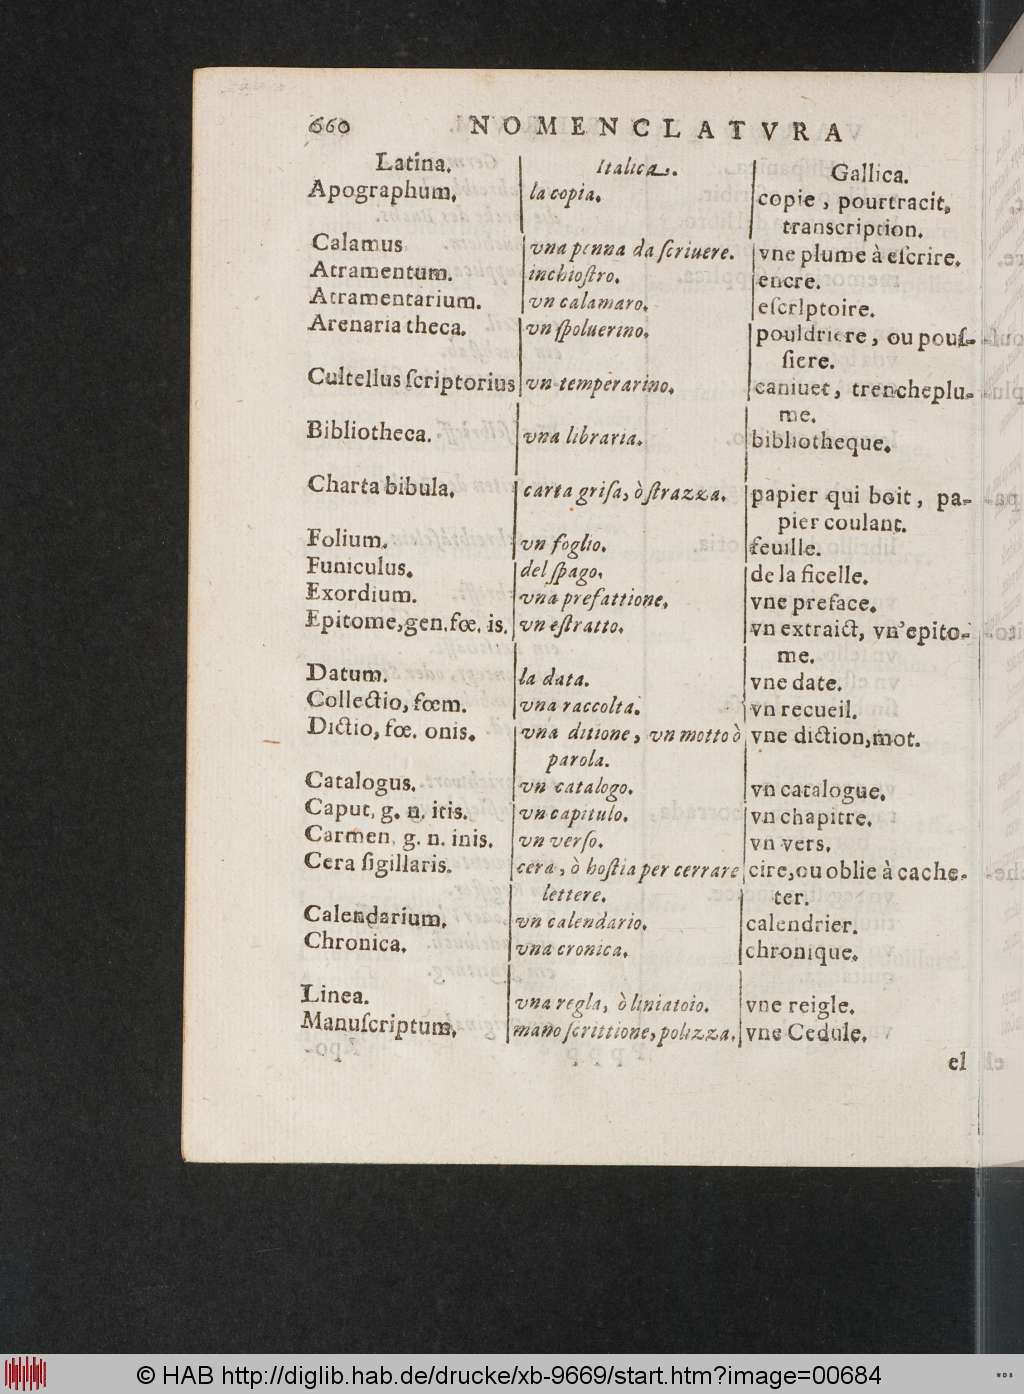 660 NOMENCLATVRA
Latina. Italica. Gallica.
Apographum. la copia. copie, pourtracit,
transcription.
Calamus vna penna da ſcriuere. vne plume à eſcrire.
Atramentum. inchioſtro. encre.
Atramentarium. vn calamaro. eſcrIptoire.
Arenaria theca. vn ſpoluerino. pouldriere, ou pouſ-
ſiere.
Cultellus ſcriptorius vn temperarino. caniuet, trencheplu-
me.
Bibliotheca. vna libraria. bibliotheque.
Charta bibula. carta griſa, ò ſtrazza. papier qui boit, pa-
pier coulant.
Folium. vn foglio. feuille.
Funiculus. del ſpago. de la ficelle.
Exordium. vna prefattione. vne preface.
Epitome, gen. fœ. is. vn eſtratto. vn extraict, vn'epito-
me.
Datum. la data. vne date.
Collectio, fœm. vna raccolta. vn recueil.
Dictio, fœ. onis. vna ditione, vn motto ò vne diction, mot.
parola.
Catalogus. vn catalogo. vn catalogue.
Caput, g. n. itis. vn capitulo. vn chapitre.
Carmen, g. n. inis. vn verſo. vn vers.
Cera ſigillaris. cera, ò hoſtia per cerrare cire, ou oblie à cache-
lettere. ter.
Calendarium. vn calendario. calendrier.
Chronica. vna cronica. chronique.
Linea. vna regla, ò liniatoio. vne reigle.
Manuſcriptum. mano ſcrittione, polizza. vne Cedule.
el
© HAB http://diglib.hab.de/drucke/xb-9669/start.htm?image=00684